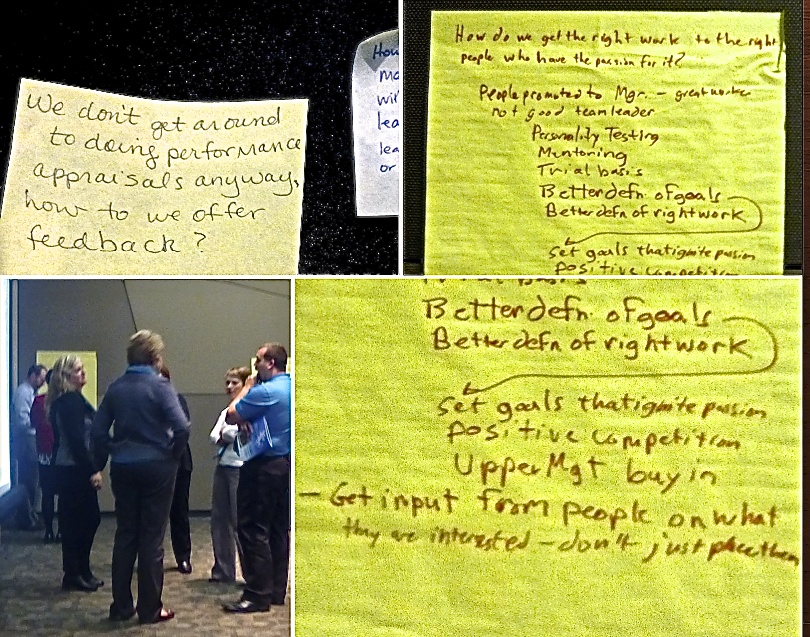 We don't get around
to doing performance
appraisals anyway,
how to we offer
feedback?
How
ma
wil
lea
lea
or
How do we get the right work to the right
people who have the passion for it?
People promoted to Mgr. - great worker
not good team leader
Personality Testing
Mentoring
Trial basis
Better defn. of goals
Better defn of right work
set goals that ignite passion
positive competition
Trial basis
Better defn. of goals
Better defn of right work
set goals that ignite passion
positive competition
Upper Mgt buy in
- Get input from people on what
they are interested - don't just place them